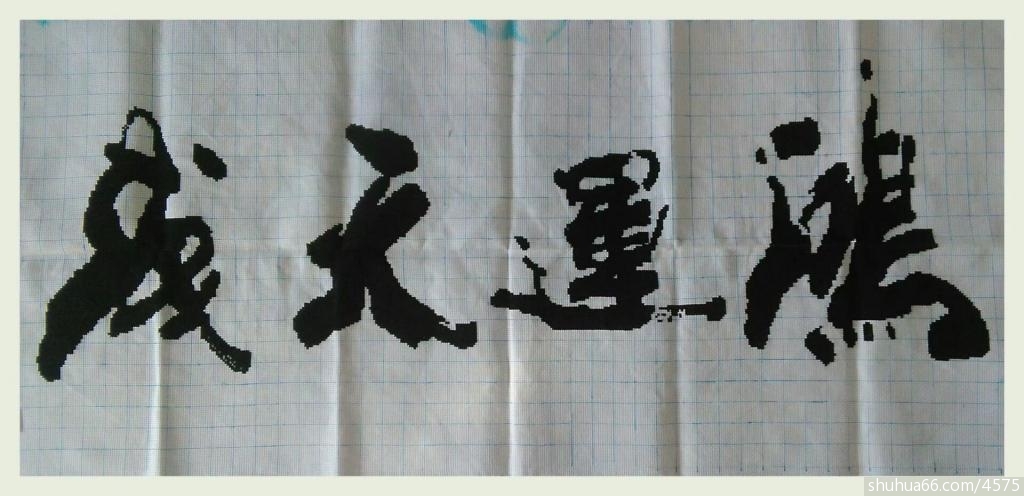 鴻運天成
shuhua66.com/4575